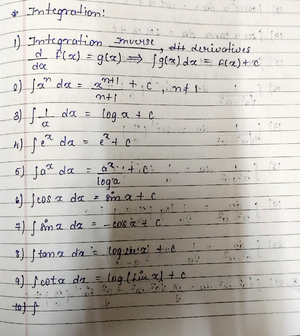 * Integration:
1) Integration inverse dif derivatives
d/dx f(x) = g(x) ⟹ ∫g(x) dx = f(x) + c
2) ∫xⁿ dx = xⁿ⁺¹/n+1 + c, n≠1
3) ∫1/a dx = log a + c
4) ∫eˣ dx = eˣ + c
5) ∫aˣ dx = aˣ/log a + c
6) ∫cos x dx = sin x + c
7) ∫sin x dx = -cos x + c
8) ∫tan x dx = log sin x + c
9) ∫cot x dx = log [sin x] + c
10) ∫